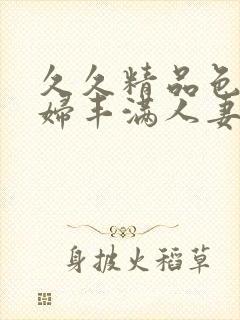 久久精品色
婦丰满人妻
身披火稻草